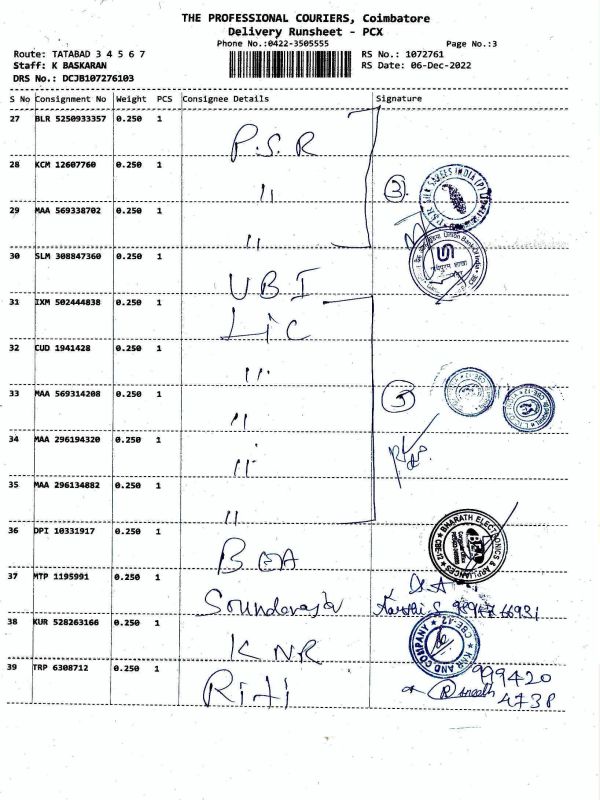 THE PROFESSIONAL COURIERS, Coimbatore
Delivery Runsheet - PCX
Phone No.:0422-3505555
Page No.:3
Route: TATABAD 3 4 5 6 7
RS No.: 1072761
Staff: K BASKARAN
RS Date: 06-Dec-2022
DRS No.: DCJB107276103
S No Consignment No Weight PCS Consignee Details Signature
27 BLR 5250933357 0.250 1 P.S.R
28 KCM 12607760 0.250 1 " 3
29 MAA 569338702 0.250 1 "
30 SLM 308847360 0.250 1 UBI
31 IXM 502444838 0.250 1 LIC
32 CUD 1941428 0.250 1 "
33 MAA 569314208 0.250 1 " 5
34 MAA 296194320 0.250 1 "
35 MAA 296134882 0.250 1 "
36 DPI 10331917 0.250 1 BEA BHARATH ELECTRONICS & APPLIANCES ★ CBE-12 ★
37 MTP 1195991 0.250 1
38 KUR 528263166 0.250 1 KNR KNR AND COMPANY ★ CBE-12 ★
39 TRP 6308712 0.250 1 Riti 999420
4738